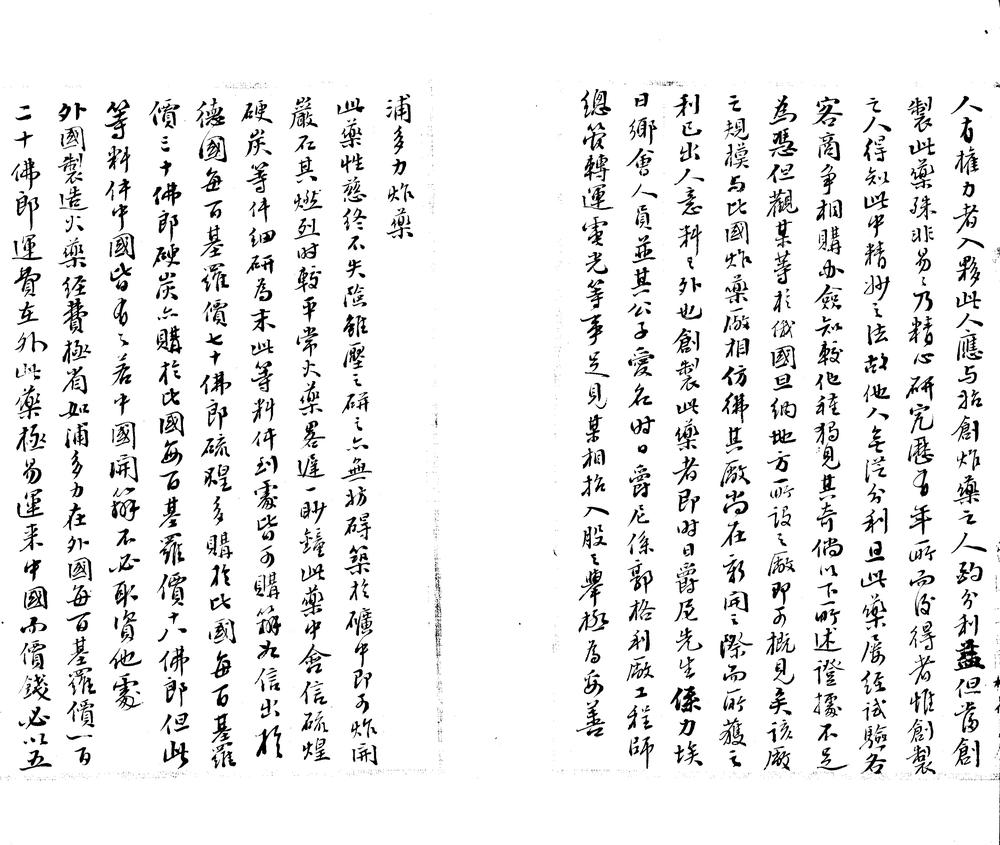 人有權力者入夥此人應与始創炸藥之人約分利益但當創
製此藥殊非易易乃精心研究歷有年所而後得者惟創製
之人得知此中精妙之法故他人無從分利且此藥屢經試驗各
客商爭相購办僉知較他種獨見其奇倘以下所述證據不足
為憑但觀某等於俄國旦納地方所設之廠即可概見矣該廠
之規模与比國炸藥廠相仿彿其廠尚在新開之際而所獲之
利已出人意料之外也創製此藥者即时日爵尼先生係力埃
日鄉會人員並其公子愛名时日爵尼係郭格利廠工程師
總管轉運電光等事足見某相招入股之舉極為妥善
浦多力炸藥
此藥性慈終不失險雖壓之研之亦無妨碍築於礦中即可炸開
嚴石其燃烈时較平常火藥畧遲一眇鐘此藥中含信硫煌
硬炭等件細研為末此等料件到處皆可購辦如信出於
德國每百基羅價七十佛郎硫煌多購於比國每百基羅
價三十佛郎硬炭亦購於比國每百基羅價十八佛郎但此
等料件中國皆有之若中國開辦不必取資他處
外國製造火藥經費極省如浦多力在外國每百基羅價一百
二十佛郎運費在外此藥極易運来中國而價錢必以五